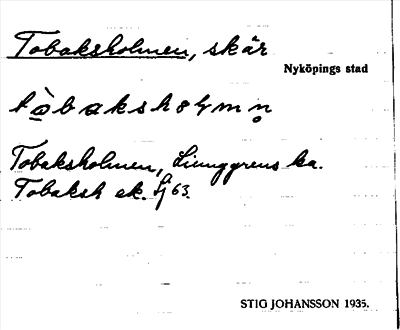 Tobaksholmen, skär
Nyköpings stad
tòbakshålmn̥
Tobaksholmen, Ljunggrens ka.
Tobaksh ek. Sj 63.
STIG JOHANSSON 1935.